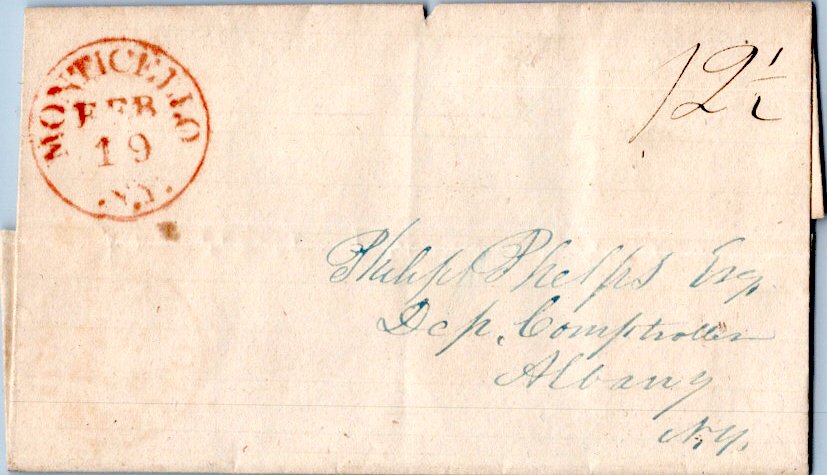 MONTICELLO
FEB
19
.N.Y.
12½
Philip Phelps Esq.
Dep. Comptroller
Albany
N.Y.